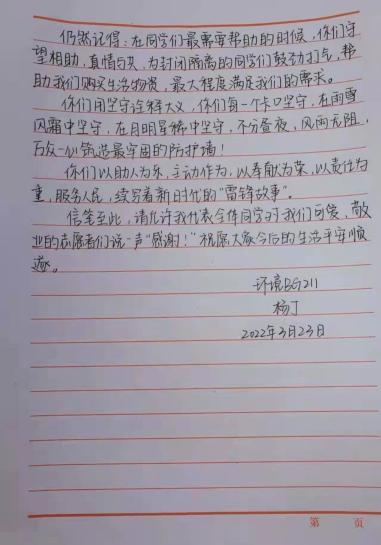 仍然记得:在同学们最需要帮助的时候,你们守
望相助,真情与共,为封闭隔离的同学们鼓劲打气,帮
助我们购买生活物资,最大程度满足我们的需求。
你们用坚守诠释大义,你们每一个卡口坚守,在雨雪
风霜中坚守,在月明星稀中坚守,不分昼夜,风雨无阻,
万众一心筑造最牢固的防护墙!
你们以助人为乐,主动作为,以奉献为荣,以责任为
重,服务人民,续写着新时代的“雷锋故事”。
信笔至此,请允许我代表全体同学对我们可爱、敬
业的志愿者们说一声“感谢!”祝愿大家今后的生活平安顺
遂。
环境BG211
杨丁
2022年3月23日
第 页